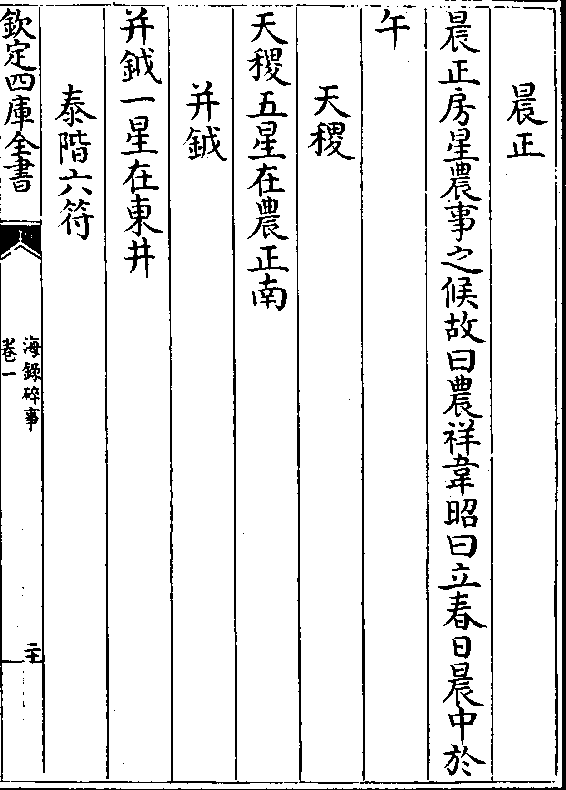 晨正
晨正房星農事之候故曰農祥韋昭曰立春日晨中於
午
天稷
天稷五星在農正南
井鉞
井鉞一星在東井
泰階六符
欽定四庫全書
海錄碎事
卷一
二十